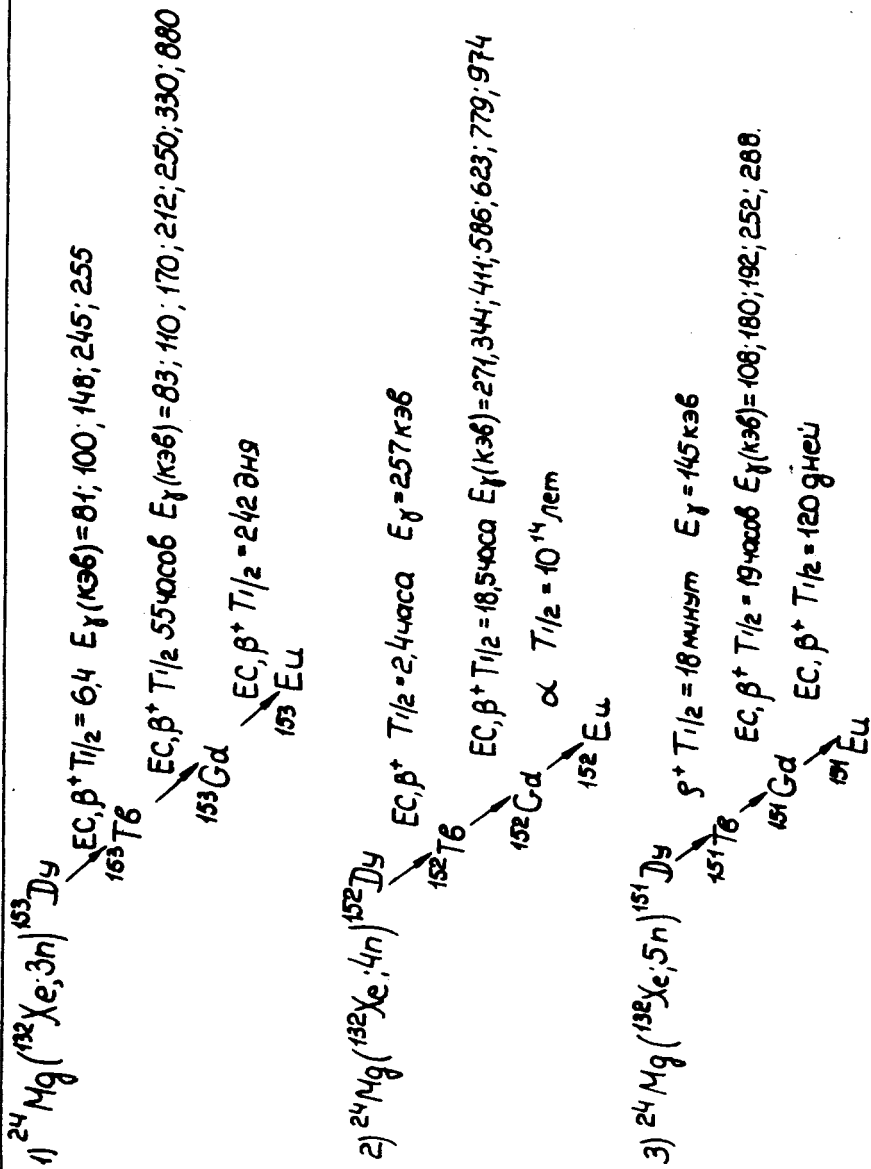 1) ²⁴Mg(¹³²Xe;3n)¹⁵³Dy
EC,β⁺T1/2 = 6,4 Eγ(кэв)=81; 100; 148; 245; 255
¹⁶³Тв
EC,β⁺T1/2 55часов Eγ(кэв)=83; 110; 170; 212; 250; 330; 880
¹⁵³Gd
EC,β⁺ T1/2 = 242 дня
¹⁵³Eu
2) ²⁴Mg(¹³²Xe;4n)¹⁵²Dy
EC,β⁺ T1/2=2,4часа Eγ=257кэв
¹⁵²Тв
EC,β⁺T1/2=18,5часа Eγ(кэв)=271,344;411;586;623;779;974
¹⁵²Gd
α T1/2 = 10¹⁴ лет
¹⁵²Eu
3) ²⁴Mg(¹³²Xe;5n)¹⁵¹Dy
ρ⁺ T1/2=18минут Eγ=145кэв
¹⁵¹Тв
EC,β⁺ T1/2=19часов Eγ(кэв)=108;180;192;252;288.
¹⁵¹Gd
EC,β⁺ T1/2=120дней
¹⁵¹Eu